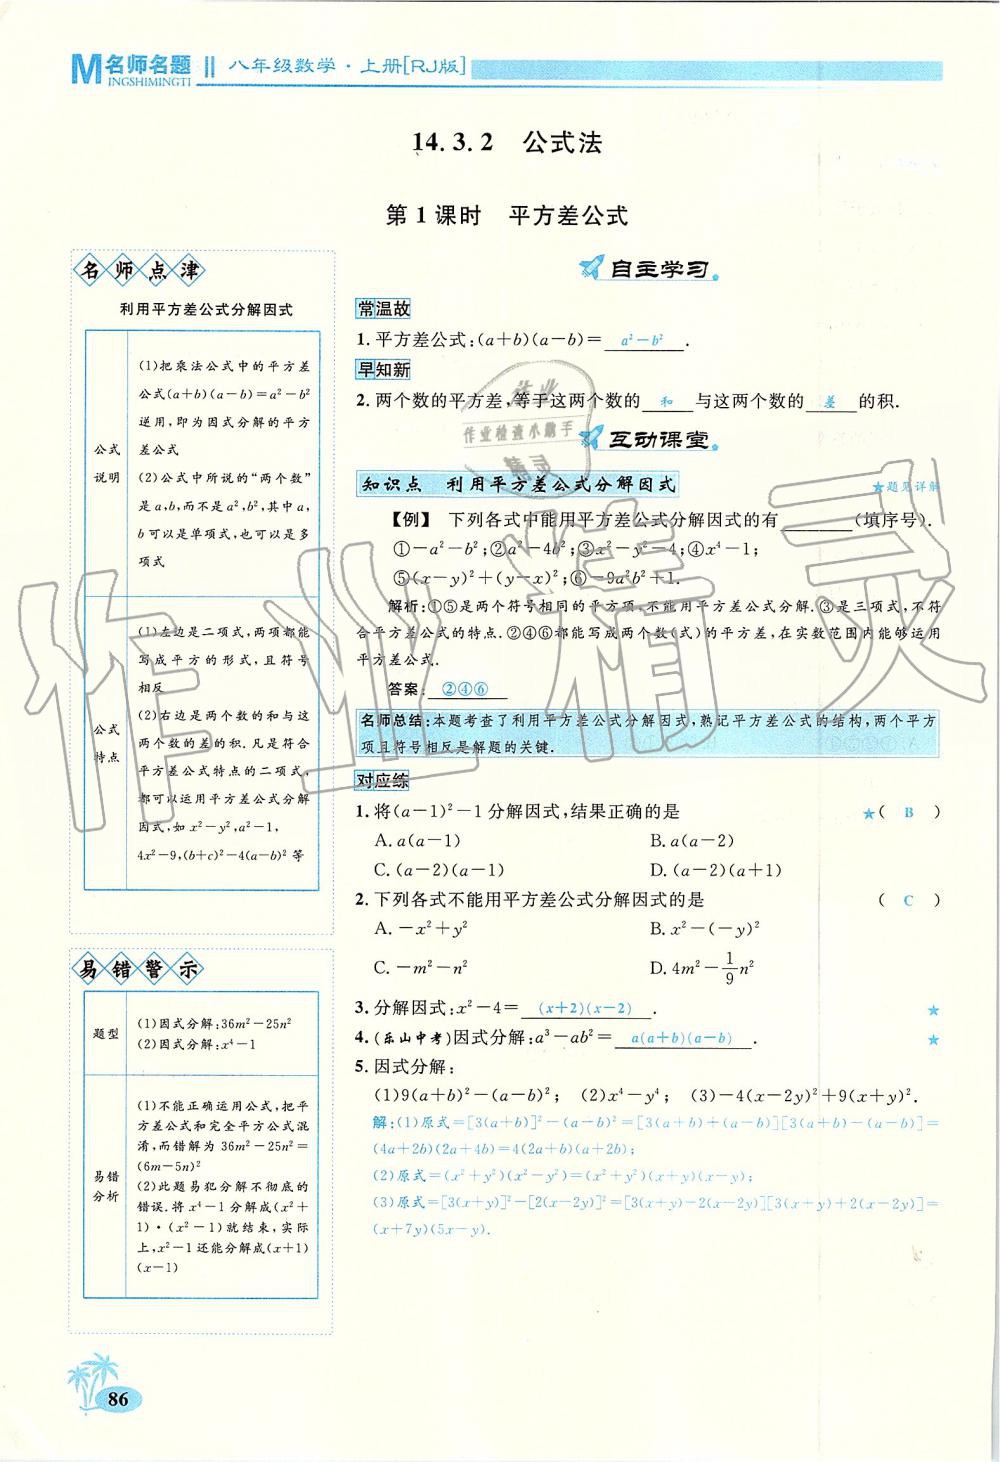 M名师名题 八年级数学·上册[RJ版]
INGSHIMINGTI
14.3.2 公式法
第1课时 平方差公式
名师点津
利用平方差公式分解因式
公式
说明
(1)把乘法公式中的平方差
公式(a+b)(a-b)=a²-b²
逆用,即为因式分解的平方
差公式
(2)公式中所说的“两个数”
是a,b,而不是a²,b²,其中a,
b可以是单项式,也可以是多
项式
公式
特点
(1)左边是二项式,两项都能
写成平方的形式,且符号
相反
(2)右边是两个数的和与这
两个数的差的积.凡是符合
平方差公式特点的二项式,
都可以运用平方差公式分解
因式,如x²-y²,a²-1,
4x²-9,(b+c)²-4(a-b)²等
易错警示
题型
(1)因式分解:36m²-25n²
(2)因式分解:x⁴-1
易错
分析
(1)不能正确运用公式,把平
方差公式和完全平方公式混
淆,而错解为36m²-25n²=
(6m-5n)²
(2)此题易犯分解不彻底的
错误.将x⁴-1分解成(x²+
1)·(x²-1)就结束,实际
上,x²-1还能分解成(x+1)
(x-1)
自主学习
常温故
1.平方差公式:(a+b)(a-b)= a²-b² .
早知新
2.两个数的平方差,等于这两个数的 和 与这两个数的 差 的积.
互动课堂
知识点 利用平方差公式分解因式 ★题见详解
【例】 下列各式中能用平方差公式分解因式的有______(填序号).
①-a²-b²;②a²-4b²;③x²-y²-4;④x⁴-1;
⑤(x-y)²+(y-x)²;⑥-9a²b²+1.
解析:①⑤是两个符号相同的平方项,不能用平方差公式分解.③是三项式,不符
合平方差公式的特点.②④⑥都能写成两个数(式)的平方差,在实数范围内能够运用
平方差公式.
答案: ②④⑥
名师总结:本题考查了利用平方差公式分解因式,熟记平方差公式的结构,两个平方
项且符号相反是解题的关键.
对应练
1.将(a-1)²-1分解因式,结果正确的是 ★( B )
A.a(a-1) B.a(a-2)
C.(a-2)(a-1) D.(a-2)(a+1)
2.下列各式不能用平方差公式分解因式的是 ( C )
A.-x²+y² B.x²-(-y)²
C.-m²-n² D.4m²-1/9n²
3.分解因式:x²-4= (x+2)(x-2) . ★
4.(乐山中考)因式分解:a³-ab²= a(a+b)(a-b) . ★
5.因式分解:
(1)9(a+b)²-(a-b)²; (2)x⁴-y⁴; (3)-4(x-2y)²+9(x+y)².
解:(1)原式=[3(a+b)]²-(a-b)²=[3(a+b)+(a-b)][3(a+b)-(a-b)]=
(4a+2b)(2a+4b)=4(2a+b)(a+2b);
(2)原式=(x²+y²)(x²-y²)=(x²+y²)(x+y)(x-y);
(3)原式=[3(x+y)]²-[2(x-2y)]²=[3(x+y)-2(x-2y)][3(x+y)+2(x-2y)]=
(x+7y)(5x-y).
作业
作业检查小助手
精灵
作业精灵
86